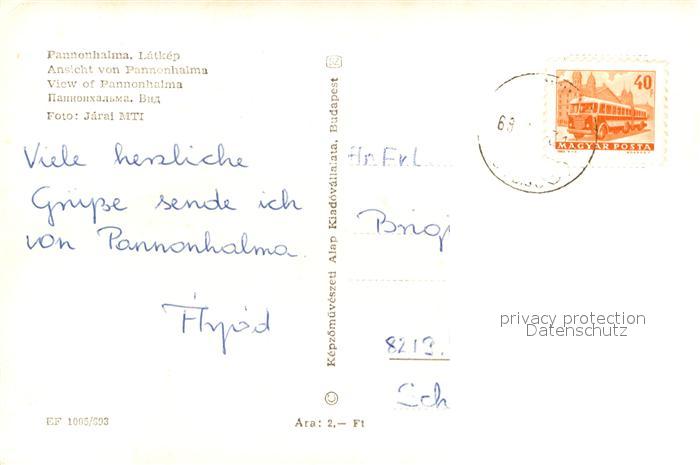 Pannonhalma, Látkép
Ansicht von Pannonhalma
View of Pannonhalma
Паннонхальма, Вид
Foto: Járai MTI
Viele herzliche
Grüße sende ich
von Pannonhalma.
EF 1005/693
Képzőművészeti Alap Kiadóvállalata, Budapest
Ára: 2,— Ft
40
MAGYAR POSTA
69
An Frl.
Brigi
8213
Sch
privacy protection
Datenschutz